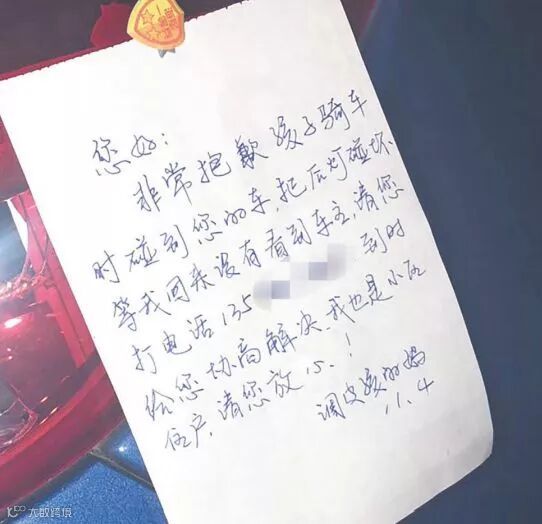 您好：
非常抱歉孩子骑车
时碰到您的车，把后灯碰坏
等我回来没有看到车主，请您
打电话135 到时
给您协商解决，我也是小区
住户，请您放心！
调皮孩的妈
11.4
大数跨境